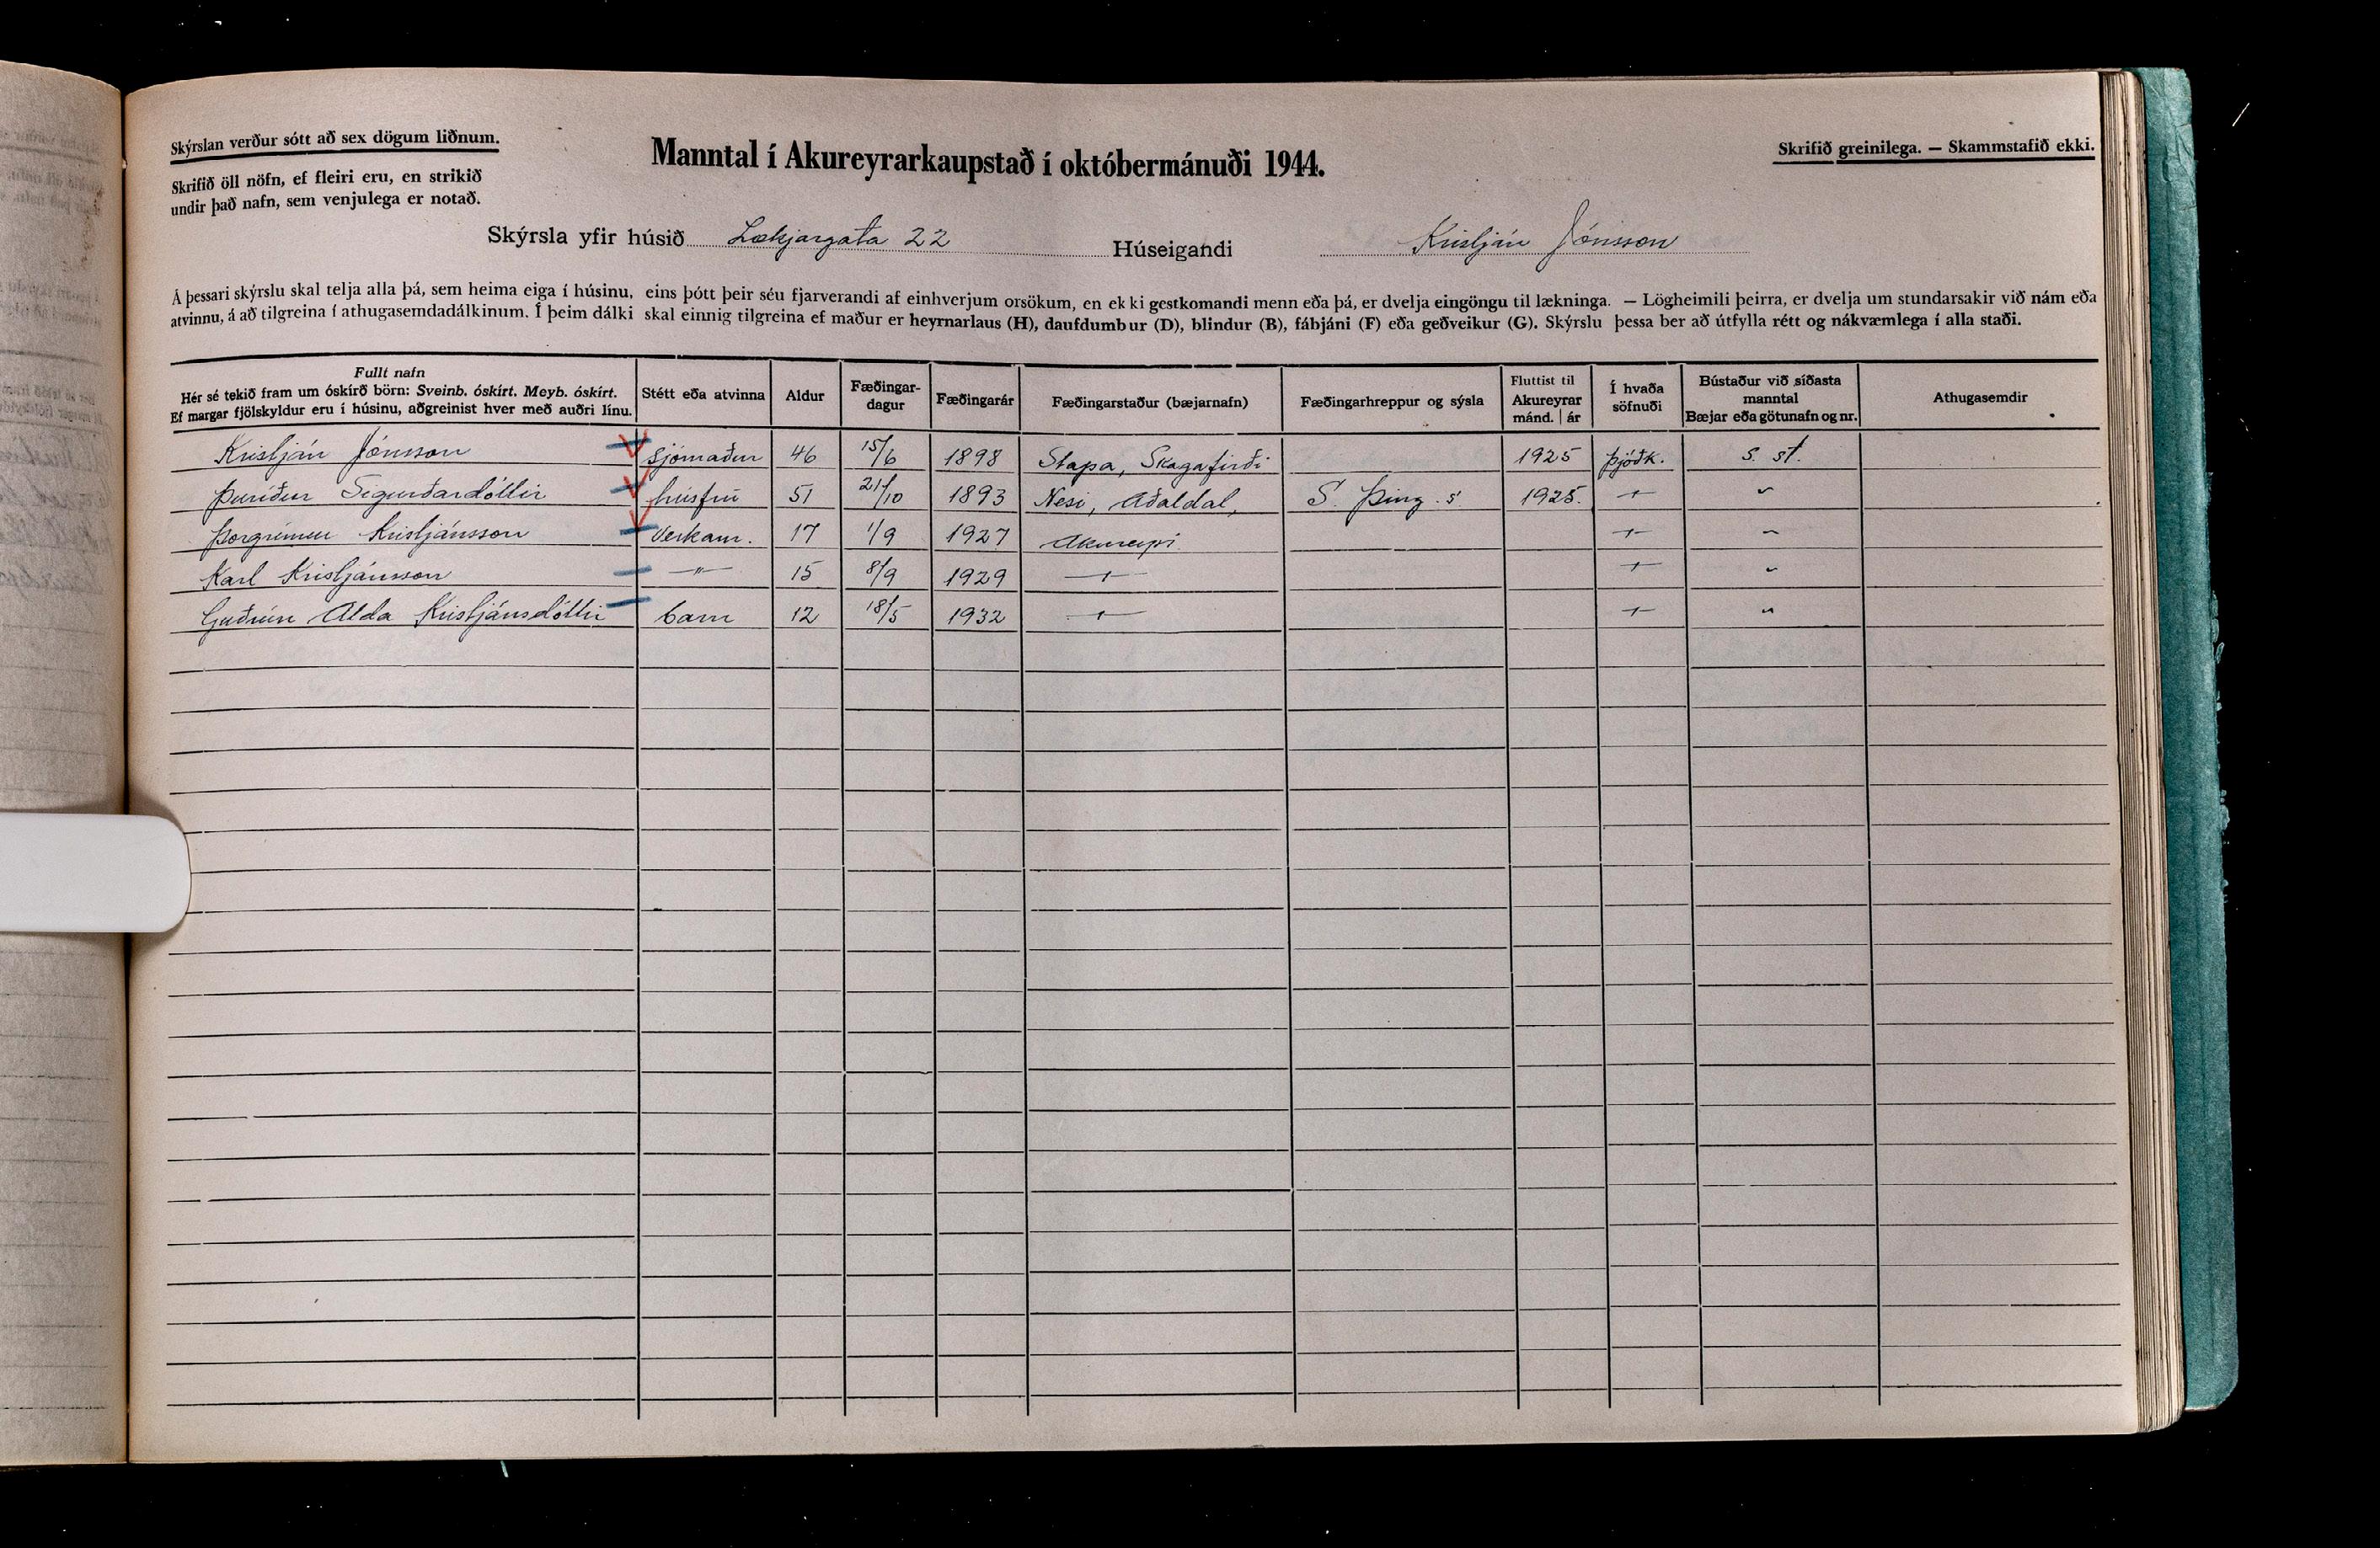 Skýrslan verður sótt að sex dögum liðnum.
Skrifið öll nöfn, ef fleiri eru, en strikið
undir það nafn, sem venjulega er notað.
Manntal í Akureyrarkaupstað í októbermánuði 1944.
Skrifið greinilega. — Skammstafið ekki.
Skýrsla yfir húsið Lækjargata 22 Húseigandi Kristján Jónsson
Á þessari skýrslu skal telja alla þá, sem heima eiga í húsinu, eins þótt þeir séu fjarverandi af einhverjum orsökum, en ekki gestkomandi menn eða þá, er dvelja eingöngu til lækninga. — Lögheimili þeirra, er dvelja um stundarsakir við nám eða
atvinnu, á að tilgreina í athugasemdadálkinum. Í þeim dálki skal einnig tilgreina ef maður er heyrnarlaus (H), daufdumbur (D), blindur (B), fábjáni (F) eða geðveikur (G). Skýrslu þessa ber að útfylla rétt og nákvæmlega í alla staði.
Fullt nafn
Hér sé tekið fram um óskírð börn: Sveinb. óskírt. Meyb. óskírt.
Ef margar fjölskyldur eru í húsinu, aðgreinist hver með auðri línu.
Stétt eða atvinna
Aldur
Fæðingar-
dagur
Fæðingarár
Fæðingarstaður (bæjarnafn)
Fæðingarhreppur og sýsla
Fluttist til
Akureyrar
mánd. | ár
Í hvaða
söfnuði
Bústaður við síðasta
manntal
Bæjar eða götunafn og nr.
Athugasemdir
Kristján Jónsson sjómaður 46 15/6 1898 Stapa, Skagafirði 1925 þjóðk. s. st.
Þuríður Sigurðardóttir húsfrú 51 21/10 1893 Nesi, Aðaldal, S. Þing. s. 1925. -〃- 〃
Þorgrímur Kristjánsson Verkam. 17 1/9 1927 Akureyri -〃- 〃
Karl Kristjánsson -〃- 15 8/9 1929 -〃- -〃- 〃
Guðrún Alda Kristjánsdóttir barn 12 18/5 1932 -〃- -〃- 〃